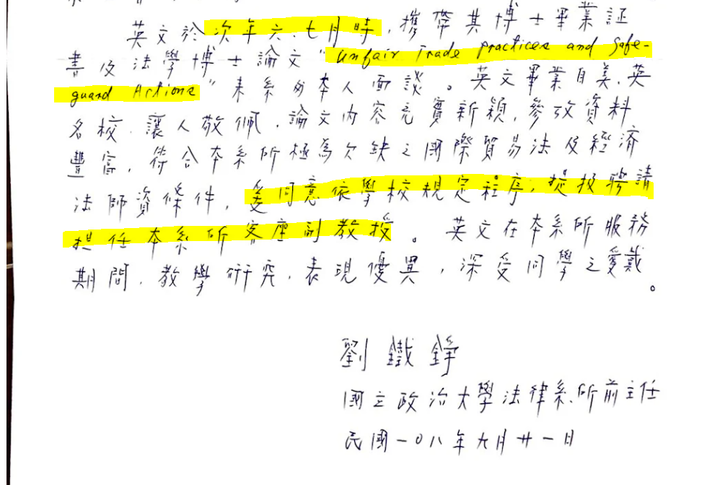 英文於次年六.七月時,攜帶其博士畢業証
書及法學博士論文"Unfair Trade practices and Safe-
guard Actions"來系所本人面談。英文畢業自美.英
名校.讓人敬佩.論文內容充實新穎,參攷資料
豐富,符合本系所極為欠缺之國際貿易法及經濟
法師資條件,爰同意依學校規定程序,提報聘請
担任本系所客座副教授。英文在本系所服務
期間.教學研究.表現優異,深受同學之愛戴。
劉鐵錚
國立政治大學法律系.所前主任
民國一0八年九月廿一日